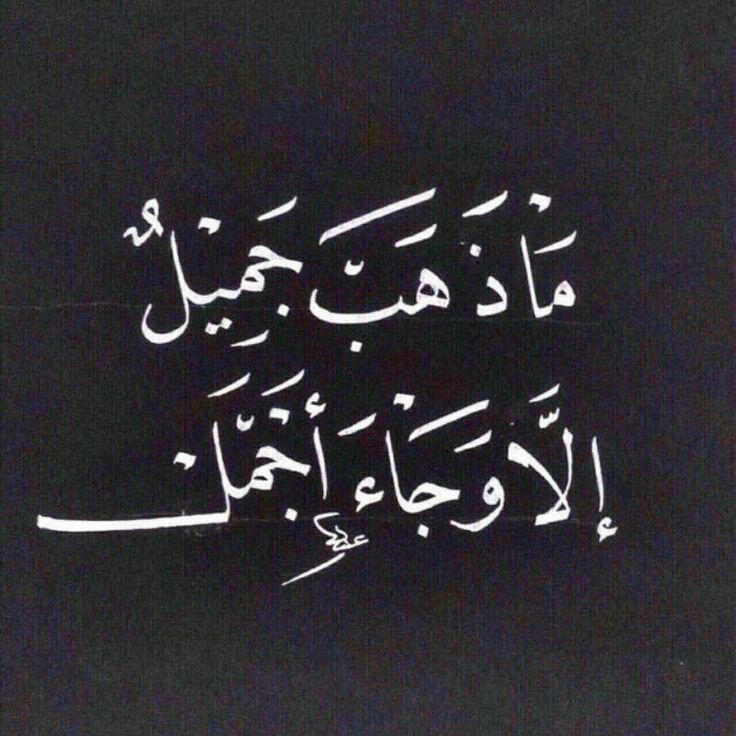 مَاْ ذَهَبَّ جَمِيْلٌ
إِلَّا وَجَاْءَ أَجْمَّلْ